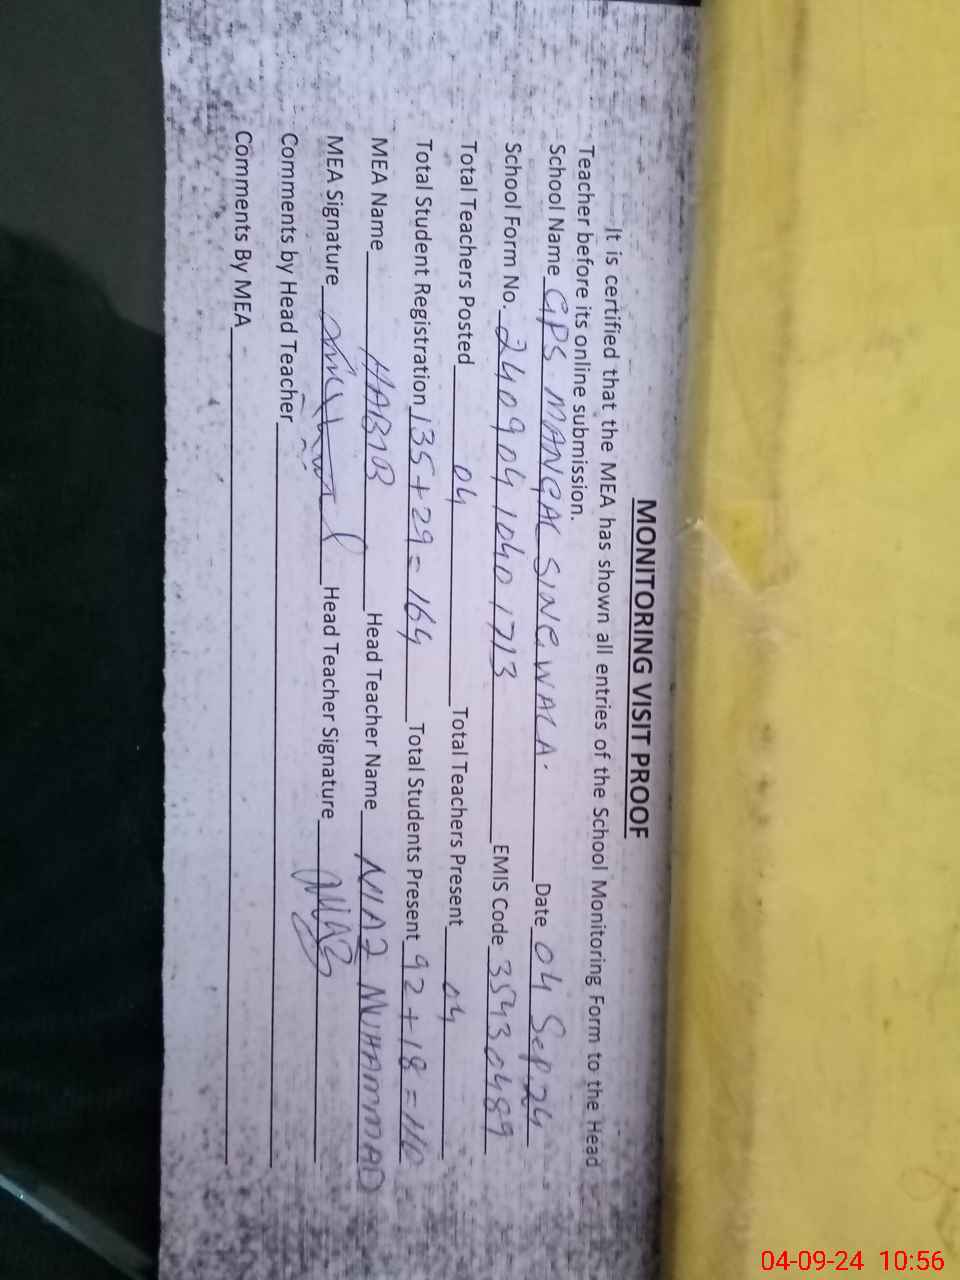 MONITORING VISIT PROOF
It is certified that the MEA has shown all entries of the School Monitoring Form to the Head
Teacher before its online submission.
School Name GPS MANGAL SINGWALA. Date 04 Sep 24
School Form No. 2409041040 1713 EMIS Code 35430489
Total Teachers Posted 04 Total Teachers Present 04
Total Student Registration 135+29=164 Total Students Present 92+18=110
MEA Name HABIB Head Teacher Name NIAZ MUHAMMAD
MEA Signature Head Teacher Signature NIAZ
Comments by Head Teacher
Comments By MEA
04-09-24 10:56